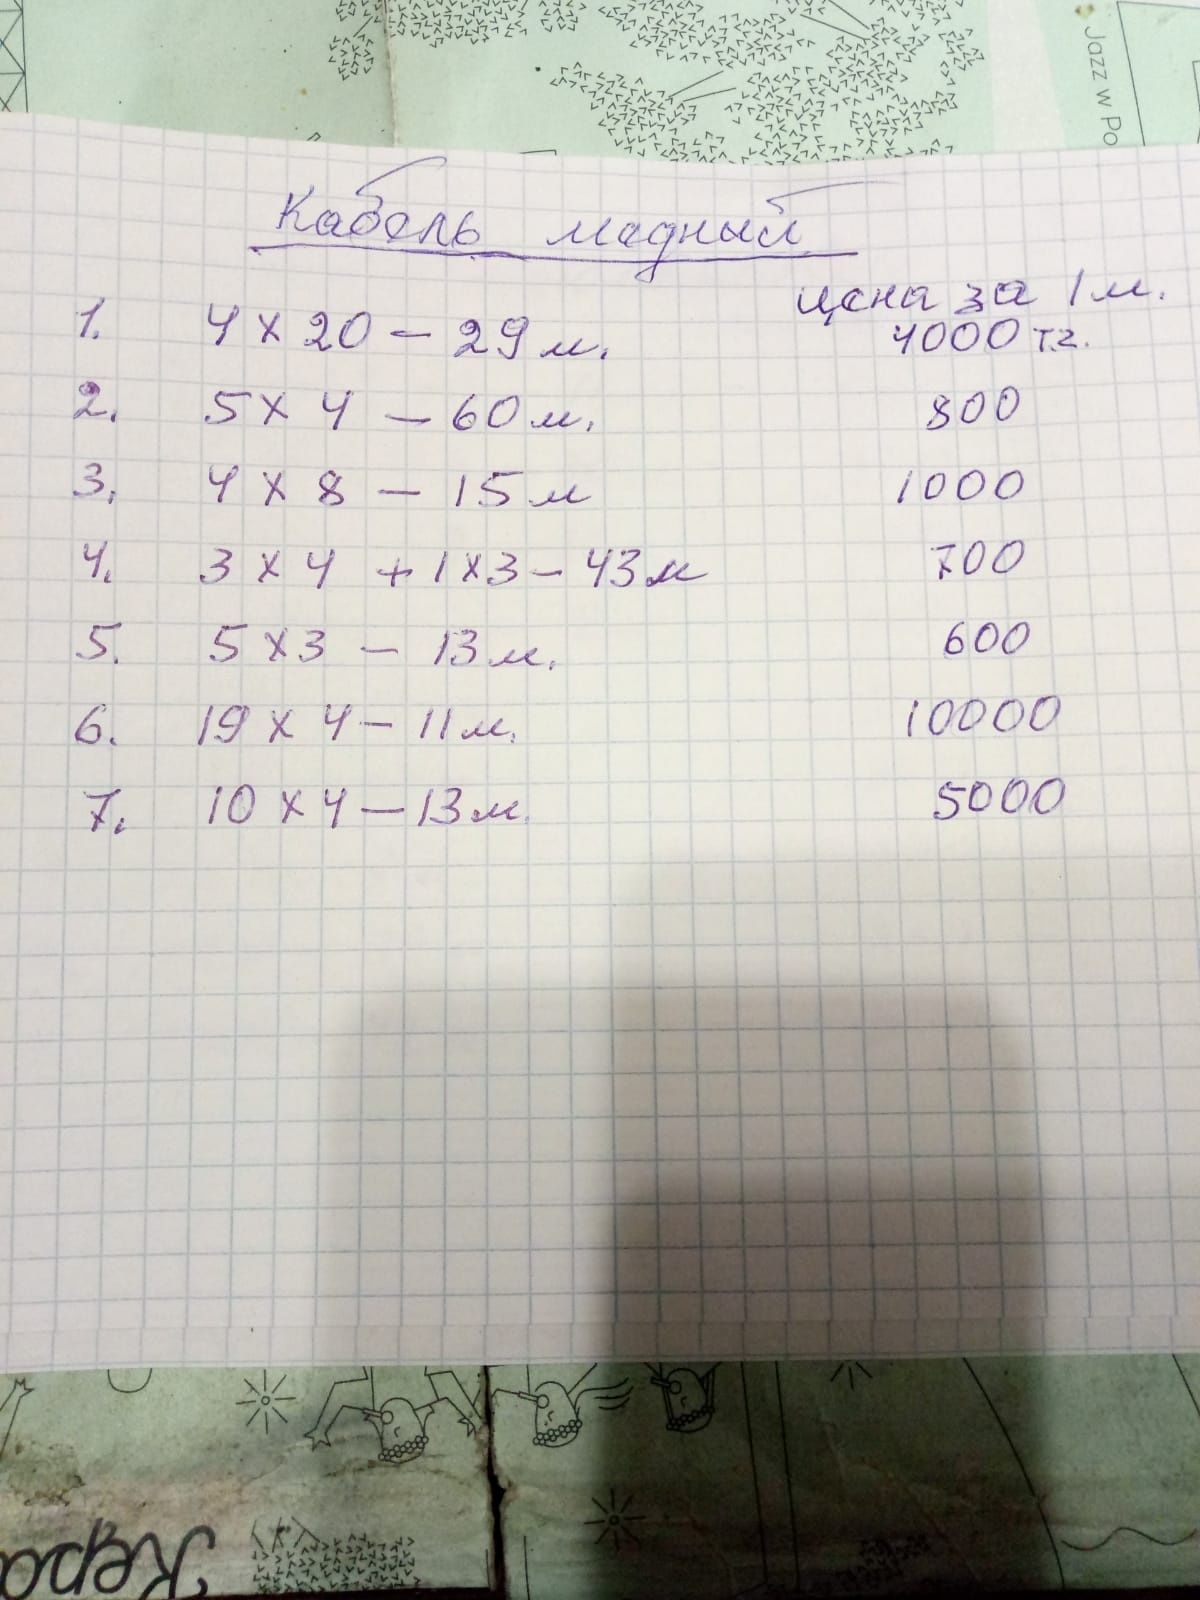 Jazz w Po
Кабель медный
цена за 1 м.
1. 4 х 20 – 29 м. 4000 тг.
2. 5 х 4 – 60 м. 800
3. 4 х 8 – 15 м 1000
4. 3 х 4 + 1 х 3 – 43 м 700
5. 5 х 3 – 13 м. 600
6. 19 х 4 – 11 м. 10000
7. 10 х 4 – 13 м. 5000